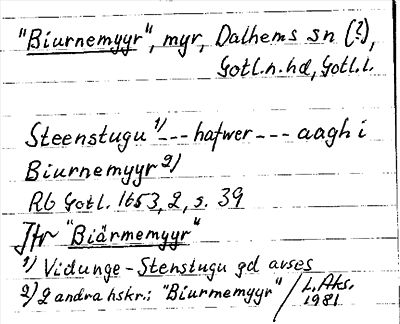 "Biurnemyyr", myr, Dalhems sn (?),
Gotl. n. hd, Gotl. l.
Steenstugu 1) --- hafwer --- aagh i
Biurnemyyr 2)
Rb Gotl. 1653, 2, s. 39
Jfr "Biärmemyyr"
1) Vidunge-Stenstugu gd avses
2) 2 andra hskr.: "Biurmemyyr" / L. Aks.
1981